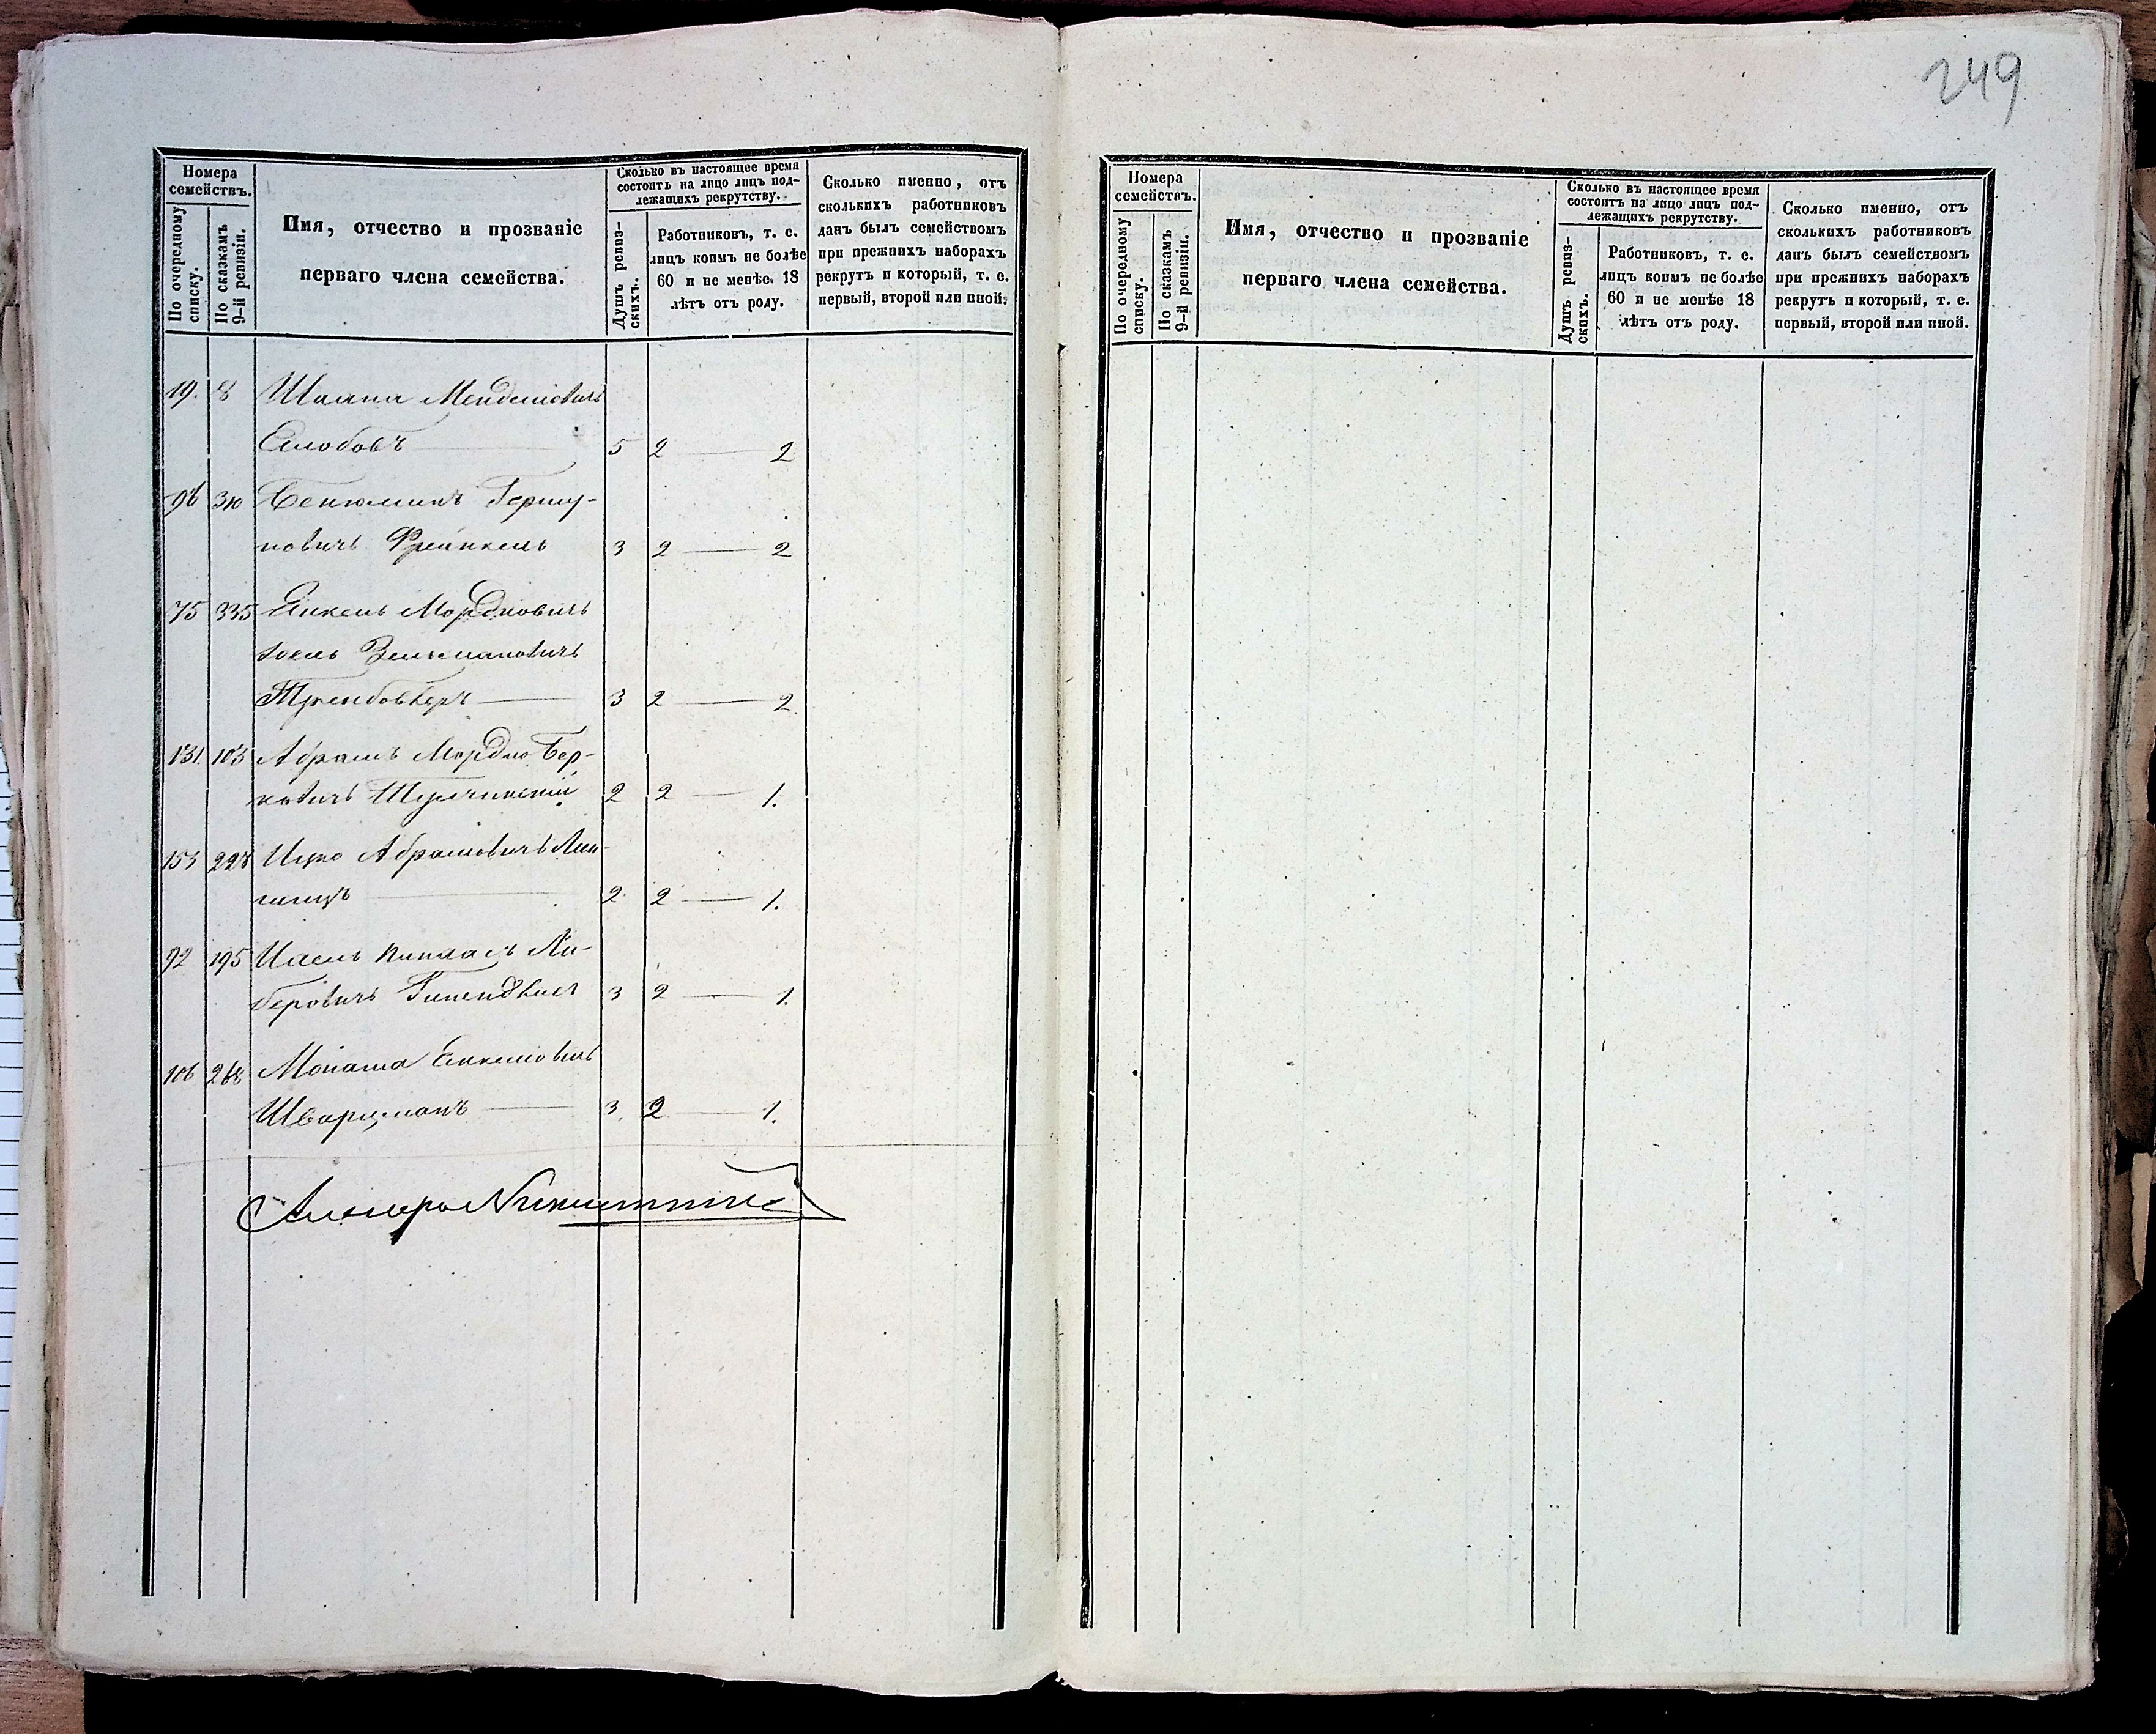 249
Номера семействъ.
По очередному списку.
По сказкамъ 9-й ревизіи.
Имя, отчество и прозваніе
перваго члена семейства.
Сколько въ настоящее время
состоитъ на лицо лицъ под-
лежащихъ рекрутству.
Душъ ревиз-
скихъ.
Работниковъ, т. е.
лицъ коимъ не болѣе
60 и не менѣе 18
лѣтъ отъ роду.
Сколько именно, отъ
сколькихъ работниковъ
данъ былъ семействомъ
при прежнихъ наборахъ
рекрутъ и который, т. е.
первый, второй или иной.
19. 8 Мендельовичъ
5 2 — 2
96 310 Бенюминъ Гершу-
новичъ Френкель 3 2 — 2
75 335 Янкель Мордковичъ
Зельмановичъ
3 2 — 2.
131. 103 Абрамъ Мордко Бер-
ковичъ 2 2 — 1.
153 228 Ицко Абрамовичъ
2. 2 — 1.
92 195 Пинхасъ Ли-
беровичъ 3 2 — 1.
106 268 Монаша Янкелiовичъ
Шварцманъ — 3. 2 — 1.
Номера
семействъ.
По очередному
списку.
По сказкамъ
9-й ревизіи.
Имя, отчество и прозваніе
перваго члена семейства.
Сколько въ настоящее время
состоитъ на лицо лицъ под-
лежащихъ рекрутству.
Душъ ревиз-
скихъ.
Работниковъ, т. е.
лицъ коимъ не болѣе
60 и не менѣе 18
лѣтъ отъ роду.
Сколько именно, отъ
сколькихъ работниковъ
данъ былъ семействомъ
при прежнихъ наборахъ
рекрутъ и который, т. е.
первый, второй или иной.